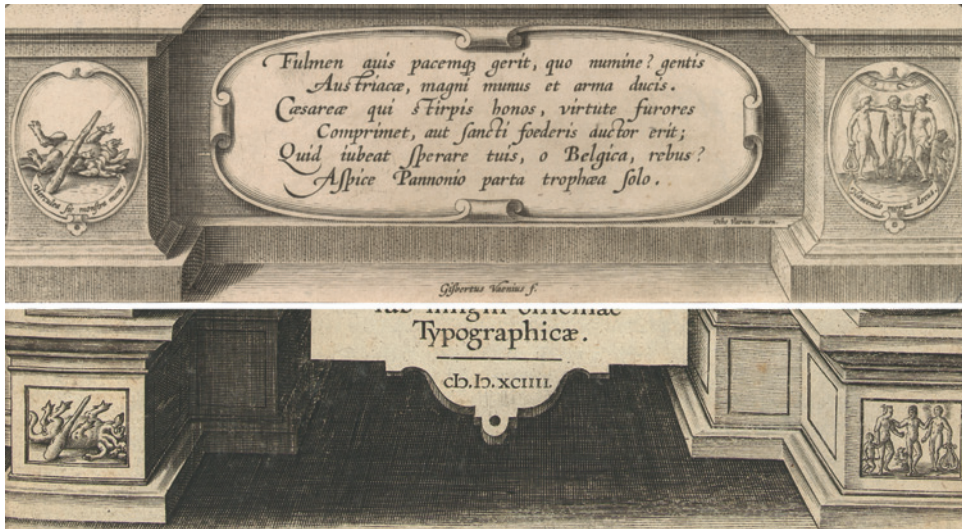 Fulmen auis pacemq; gerit, quo numine? gentis
Austriacæ, magni munus et arma ducis.
Cæsareæ qui stirpis honos, virtute furores
Comprimet, aut sancti foederis auctor erit;
Quid iubeat sperare tuis, o Belgica, rebus?
Aspice Pannonio parta trophæa solo.
Otho Vaenius inuen.
Gisbertus Vaenius f.
Typographicæ.
cIↄ.Iↄ.XCIIII.